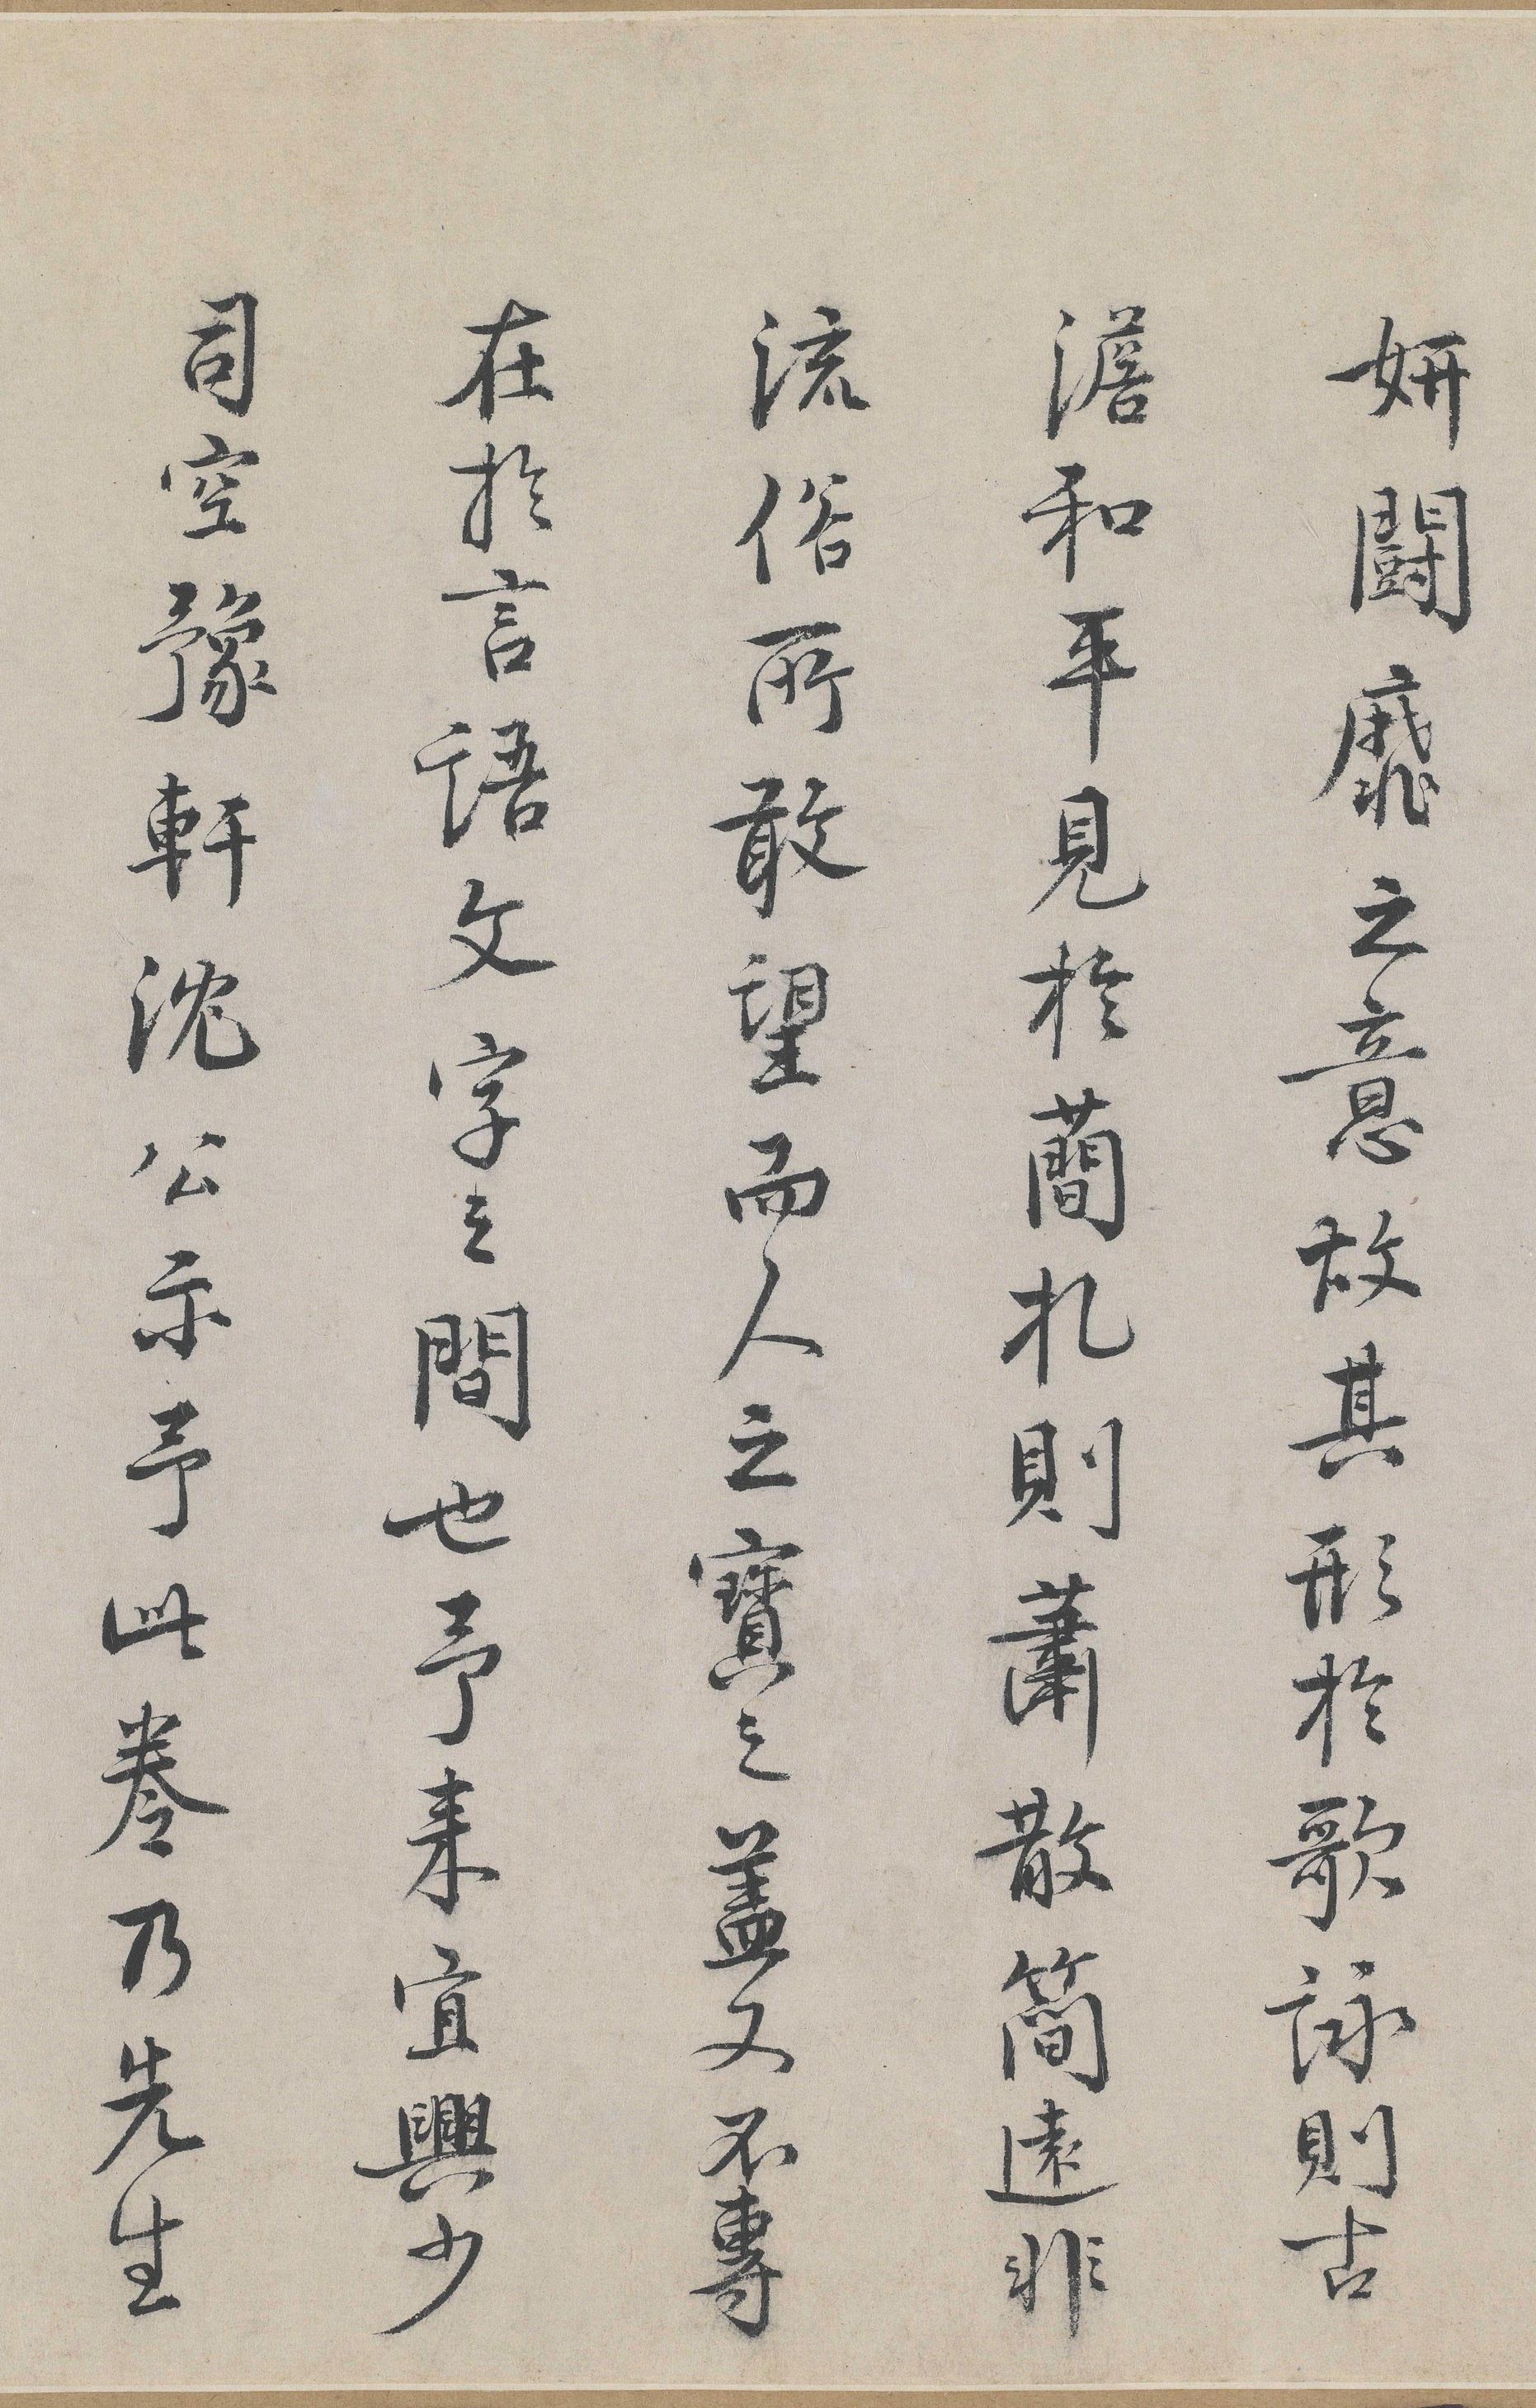 妍鬪靡之意故其形於歌詠則古
澹和平見於蕳札則蕭散簡遠非
流俗所敢望而人之寶之蓋又不專
在於言語文字之間也予来宜興少
司空豫軒沈公示予此卷乃先生